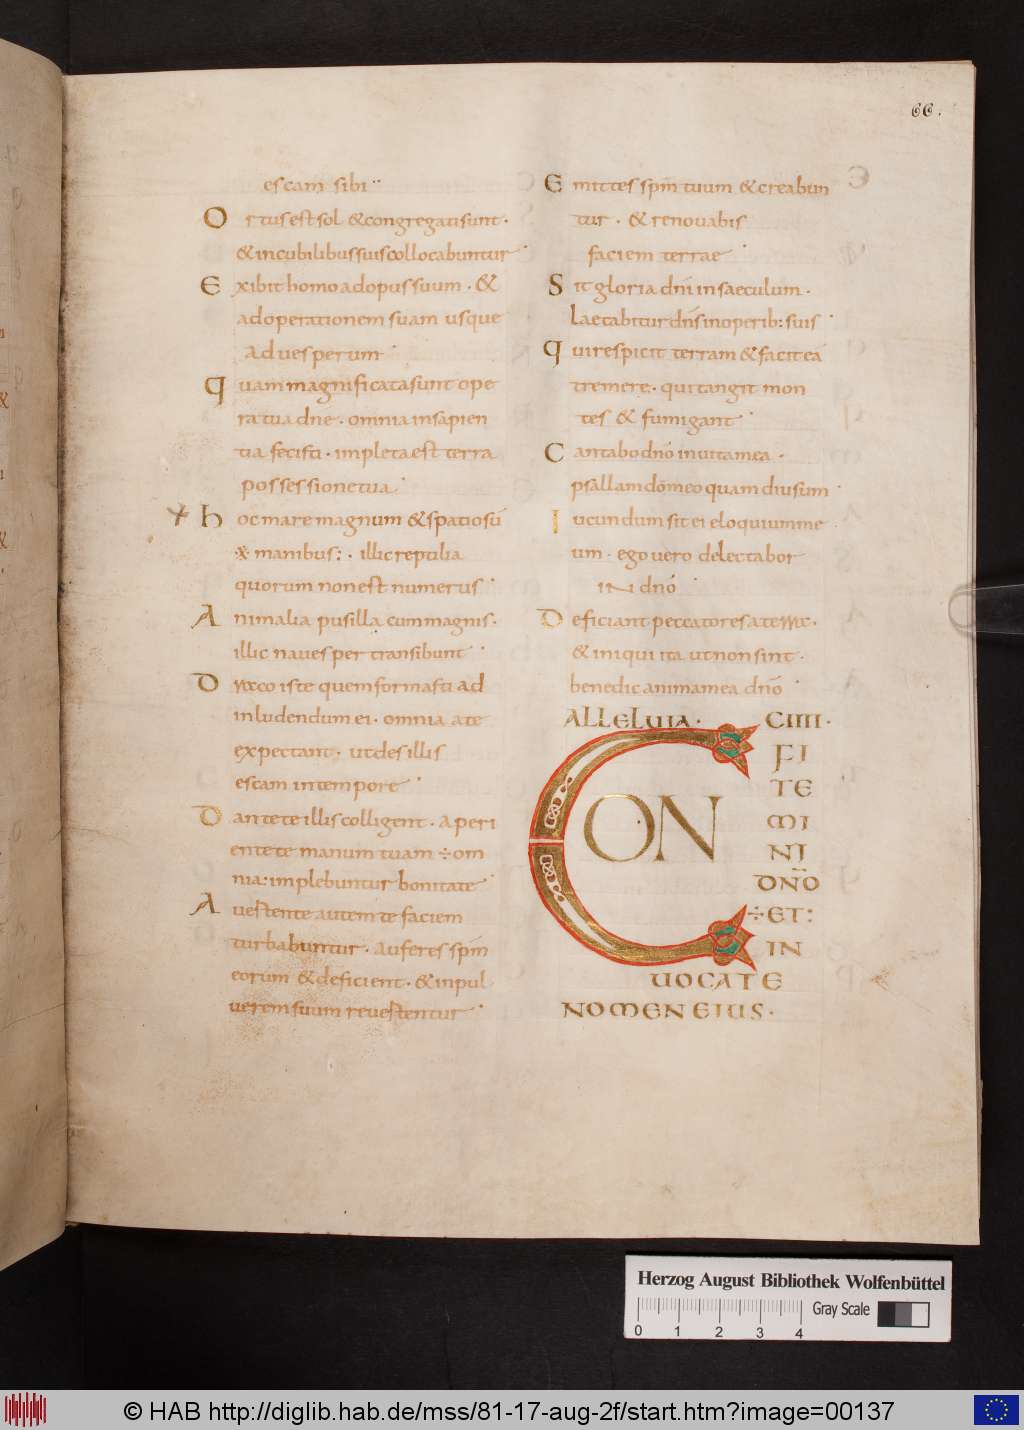 66.
escam sibi
Ortus est sol & congregati sunt ·
& in cubilibus suis collocabuntur
Exibit homo ad opus suum · &
ad operationem suam usque
ad vesperum
Quam magnificata sunt ope
ra tua dne · omnia in sapien
tia fecisti · impleta est terra
possessione tua
hoc mare magnum & spatiosū
manibus : · illic reptilia
quorum non est numerus
Animalia pusilla cum magnis ·
illic naves per transibunt
Draco iste quem formasti ad
inludendum ei · omnia a te
expectant · ut des illis
escam in tempore
Dante te illis colligent · aperi
ente te manum tuam ÷ om
nia : implebuntur bonitate
Avertente autem te faciem
turbabuntur · auferes spm
eorum & deficient · & in pul
verem suum revertentur
Emittes spm tuum & creabun
tur · & renovabis
faciem terrae
Sit gloria dni in saeculum ·
laetabitur dns in operib: suis
Qui respicit terram & facit eā
tremere · qui tangit mon
tes & fumigant
Cantabo dno in vita mea ·
psallam dō meo quam diu sum
Iucundum sit ei eloquium me
um · ego vero delectabor
IN dno
Deficiant peccatores a terra ·
& iniqui ita ut non sint ·
benedic anima mea dno
ALLELUIA · CIIII ·
CON
FI
TE
MI
NI
DNO
÷ ET :
IN
UOCATE
NOMEN EIUS ·
Herzog August Bibliothek Wolfenbüttel
0 1 2 3 4 Gray Scale
© HAB http://diglib.hab.de/mss/81-17-aug-2f/start.htm?image=00137